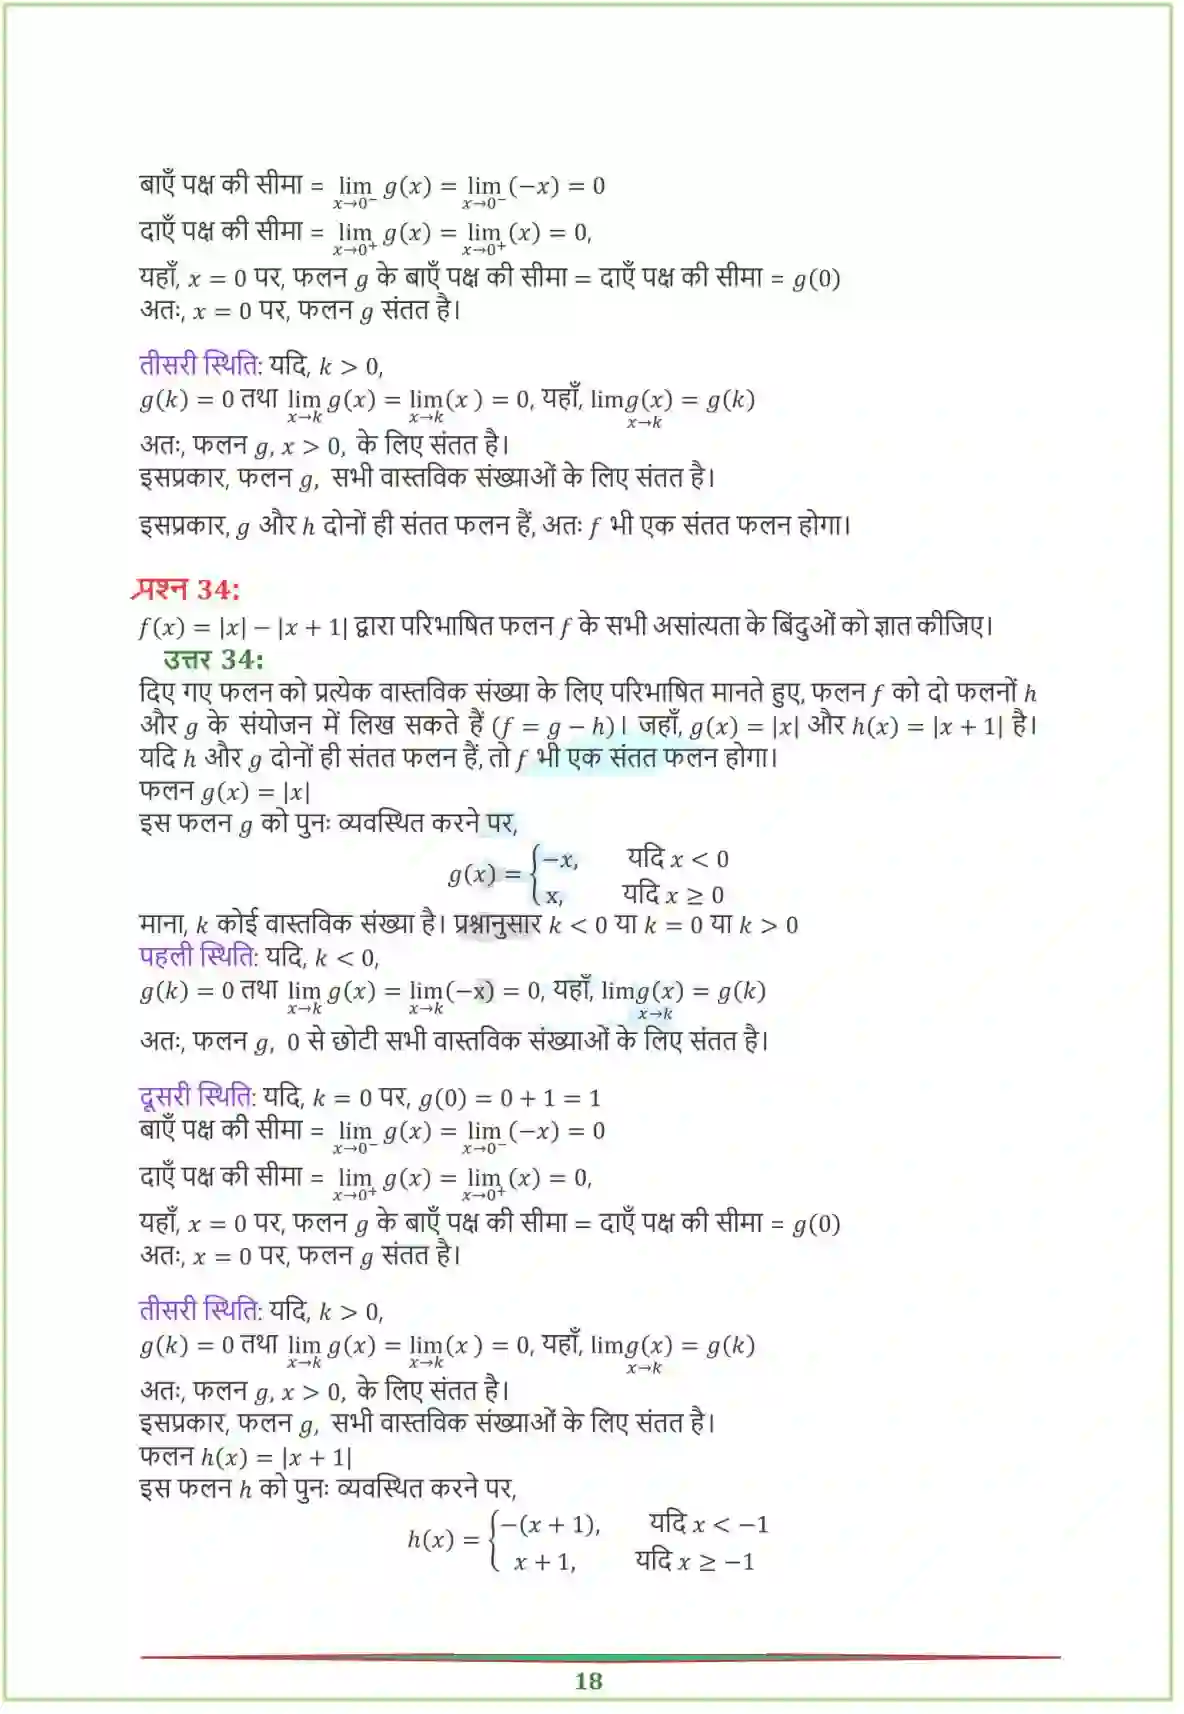 बाएँ पक्ष की सीमा = lim x→0⁻ g(x) = lim x→0⁻ (−x) = 0
दाएँ पक्ष की सीमा = lim x→0⁺ g(x) = lim x→0⁺ (x) = 0,
यहाँ, x = 0 पर, फलन g के बाएँ पक्ष की सीमा = दाएँ पक्ष की सीमा = g(0)
अतः, x = 0 पर, फलन g संतत है।
तीसरी स्थिति: यदि, k > 0,
g(k) = 0 तथा lim x→k g(x) = lim x→k (x ) = 0, यहाँ, lim x→k g(x) = g(k)
अतः, फलन g, x > 0, के लिए संतत है।
इसप्रकार, फलन g, सभी वास्तविक संख्याओं के लिए संतत है।
इसप्रकार, g और h दोनों ही संतत फलन हैं, अतः f भी एक संतत फलन होगा।
प्रश्न 34:
f(x) = |x| − |x + 1| द्वारा परिभाषित फलन f के सभी असांत्यता के बिंदुओं को ज्ञात कीजिए।
उत्तर 34:
दिए गए फलन को प्रत्येक वास्तविक संख्या के लिए परिभाषित मानते हुए, फलन f को दो फलनों h
और g के संयोजन में लिख सकते हैं (f = g − h)। जहाँ, g(x) = |x| और h(x) = |x + 1| है।
यदि h और g दोनों ही संतत फलन हैं, तो f भी एक संतत फलन होगा।
फलन g(x) = |x|
इस फलन g को पुनः व्यवस्थित करने पर,
g(x) = { −x, यदि x < 0
x, यदि x ≥ 0
माना, k कोई वास्तविक संख्या है। प्रश्नानुसार k < 0 या k = 0 या k > 0
पहली स्थिति: यदि, k < 0,
g(k) = 0 तथा lim x→k g(x) = lim x→k (−x) = 0, यहाँ, lim x→k g(x) = g(k)
अतः, फलन g, 0 से छोटी सभी वास्तविक संख्याओं के लिए संतत है।
दूसरी स्थिति: यदि, k = 0 पर, g(0) = 0 + 1 = 1
बाएँ पक्ष की सीमा = lim x→0⁻ g(x) = lim x→0⁻ (−x) = 0
दाएँ पक्ष की सीमा = lim x→0⁺ g(x) = lim x→0⁺ (x) = 0,
यहाँ, x = 0 पर, फलन g के बाएँ पक्ष की सीमा = दाएँ पक्ष की सीमा = g(0)
अतः, x = 0 पर, फलन g संतत है।
तीसरी स्थिति: यदि, k > 0,
g(k) = 0 तथा lim x→k g(x) = lim x→k (x ) = 0, यहाँ, lim x→k g(x) = g(k)
अतः, फलन g, x > 0, के लिए संतत है।
इसप्रकार, फलन g, सभी वास्तविक संख्याओं के लिए संतत है।
फलन h(x) = |x + 1|
इस फलन h को पुनः व्यवस्थित करने पर,
h(x) = { −(x + 1), यदि x < −1
x + 1, यदि x ≥ −1
18